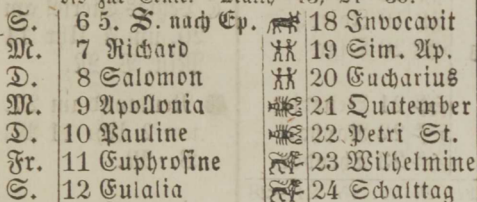 S. 6 5. S. nach Ep. 18 Invocavit
M. 7 Richard 19 Sim. Ap.
D. 8 Salomon 20 Eucharius
M. 9 Apollonia 21 Quatember
D. 10 Pauline 22 Petri St.
Fr. 11 Euphrosine 23 Wilhelmine
S. 12 Eulalia 24 Schalttag